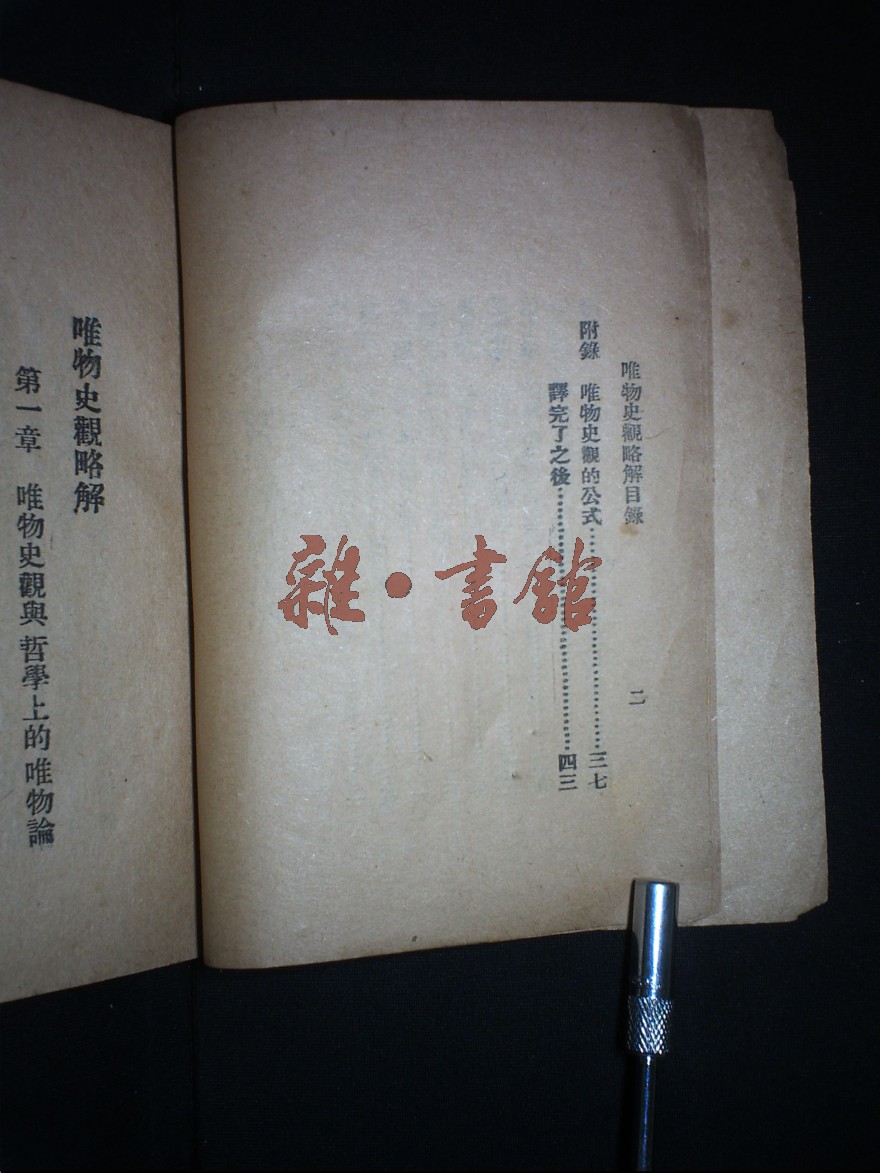 唯物史觀略解目錄 二
附錄 唯物史觀的公式……三七
譯完了之後……四三
唯物史觀略解
第一章 唯物史觀與哲學上的唯物論
雜·書館